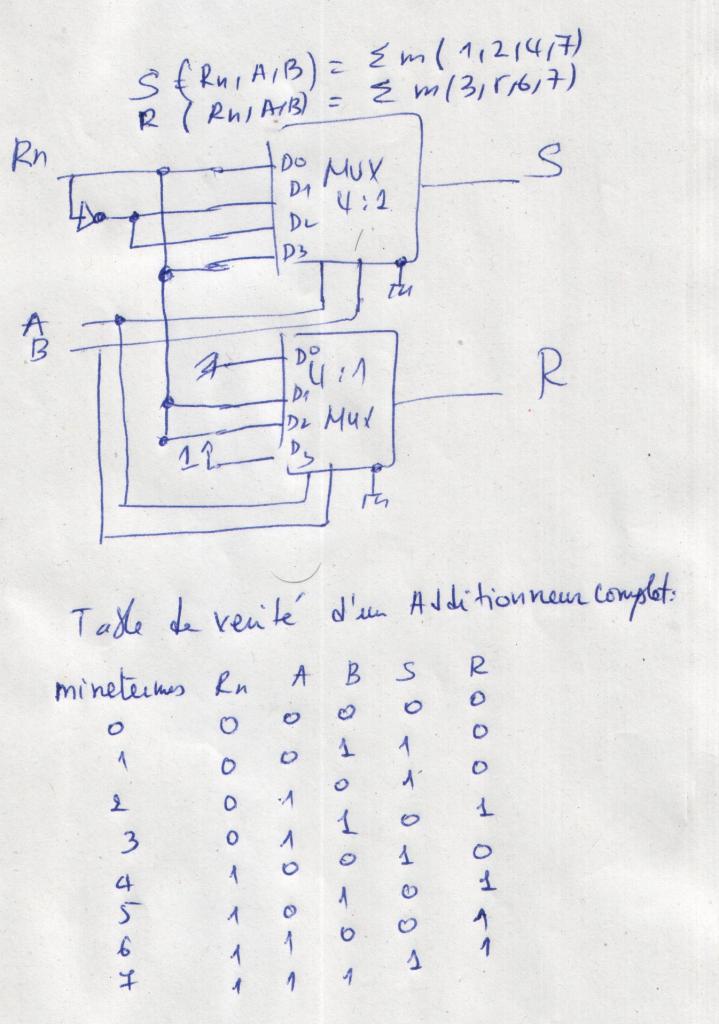 S (Rn, A, B) = Σ m ( 1, 2, 4, 7)
R ( Rn, A, B) = Σ m (3, 5, 6, 7)
Rn
D0
D1
D2
D3
MUX
4:1
S
A
B
D0
D1
D2
D3
4:1
MUX
R
Table de verité d'un Additionneur complet:
minetermes Rn A B S R
0 0 0 0 0 0
1 0 0 1 1 0
2 0 1 0 1 0
3 0 1 1 0 1
4 1 0 0 1 0
5 1 0 1 0 1
6 1 1 0 0 1
7 1 1 1 1 1